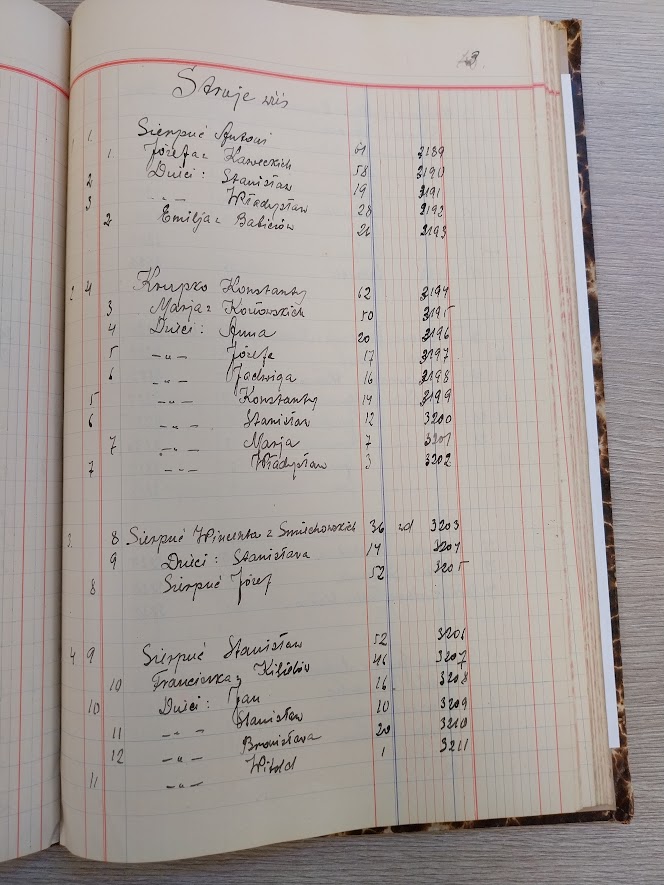 Struje wieś
1 1 Sierpuć Antoni 61 3189
1 Józefa z Kaweckich 58 3190
2 Dzieci: Stanisław 19 3191
3 -„- Władysław 28 3192
2 Emilja z Babiców 21 3193
2 4 Krupko Konstanty 62 3194
3 Marja z Konowskich 50 3195
4 Dzieci: Anna 20 3196
5 -„- Józefa 17 3197
6 -„- Jadwiga 16 3198
5 -„- Konstanty 14 3199
6 -„- Stanisław 12 3200
7 -„- Marja 7 3201
7 -„- Władysław 3 3202
3. 8 Sierpuć Wincenta z Smiechowskich 36 wd 3203
9 Dzieci: Stanisława 14 3204
8 Sierpuć Józef 52 3205
4 9 Sierpuć Stanisław 52 3206
10 Franciszka z 46 3207
10 Dzieci: Jan 16 3208
11 -„- Stanisław 10 3209
12 -„- Bronisława 20 3210
11 -„- Witold 1 3211